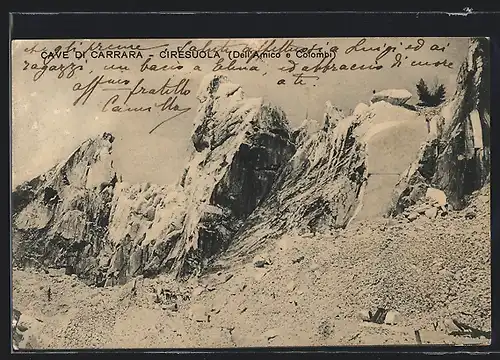 CAVE DI CARRARA - CIRESUOLA (Dell'Amico e Colombi)
affettuosi a Luigi ed ai
ragazzi, un bacio a Elna, ed abbraccio di cuore
a te,
aff. fratello
Camillo